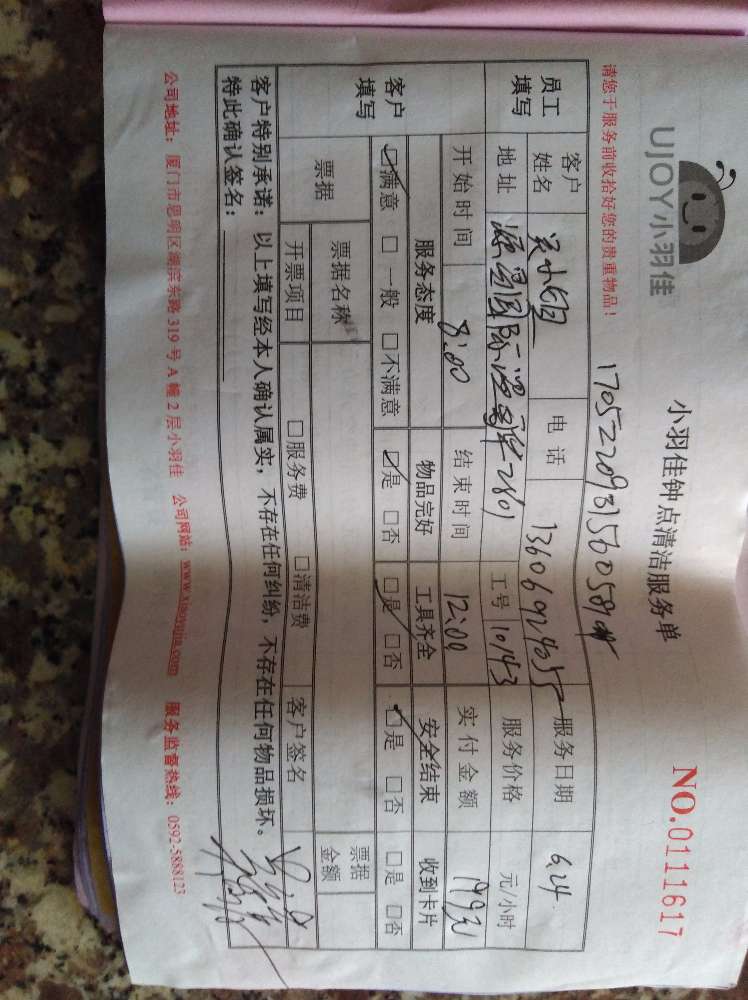 UJOY小羽佳
小羽佳钟点清洁服务单
NO.0111617
请您于服务前收拾好您的贵重物品！
员工填写
客户姓名
电话 13606924055
服务日期 6.24
地址
工号 10143
服务价格 元/小时
开始时间 8:00
结束时间 12:00
实付金额
客户填写
服务态度 物品完好 工具齐全 安全结束 收到卡片
☑满意 □一般 □不满意 ☑是 □否 ☑是 □否 ☑是 □否 □是 □否
票据
票据名称
票据金额
开票项目 □服务费 □清洁费 客户签名
客户特别承诺：以上填写经本人确认属实，不存在任何纠纷，不存在任何物品损坏。
特此确认签名：
公司地址：厦门市思明区湖滨东路319号A幢2层小羽佳 公司网站：www.xiaoyujia.com 服务监督热线：0592-5888123